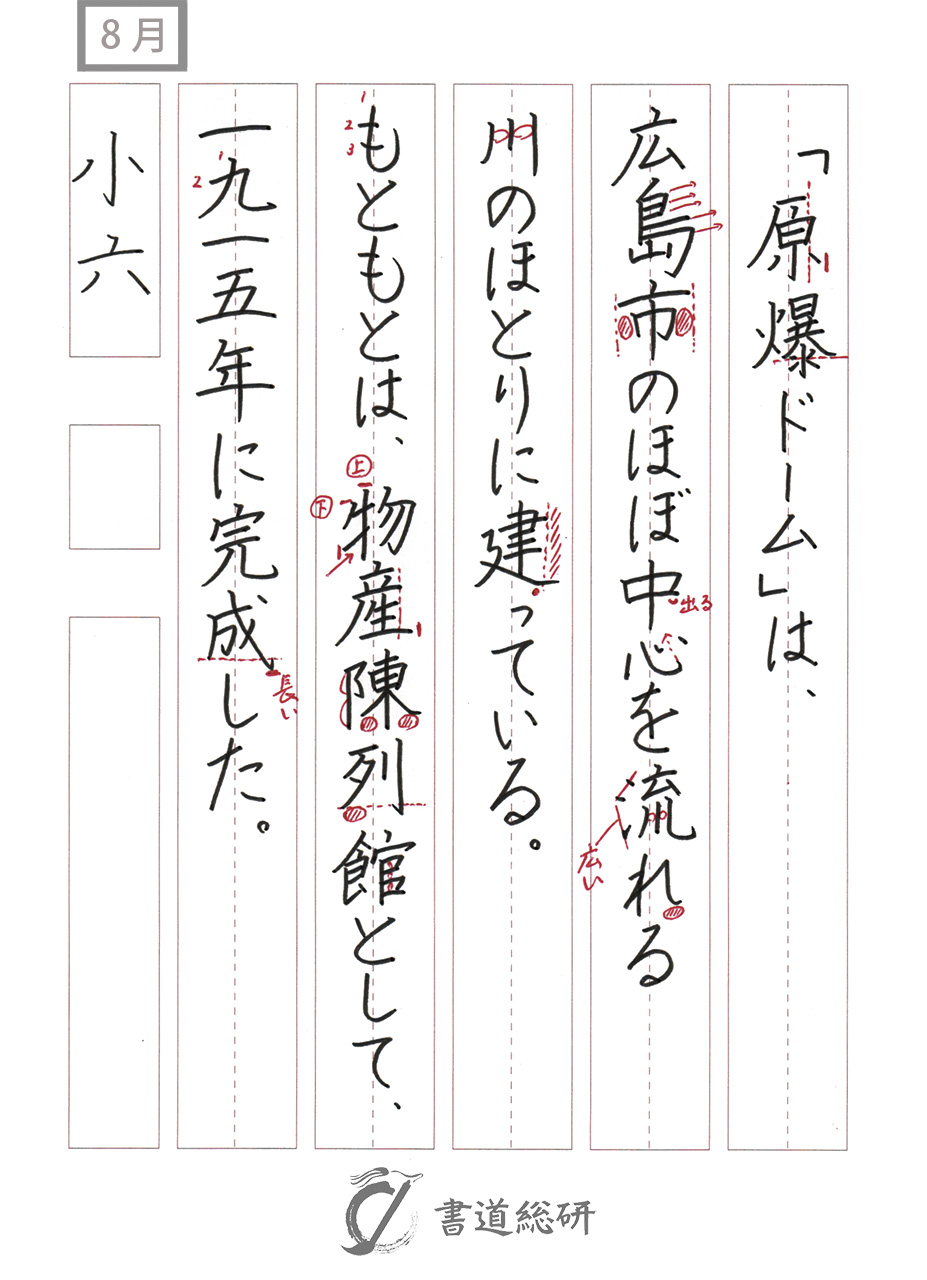 8月
「原爆ドーム」は、
広島市のほぼ中心を流れる
川のほとりに建っている。
もともとは、物産陳列館として、
一九一五年に完成した。
小六
出る
広い
1
2
3
上
下
1
2
長い
書道総研